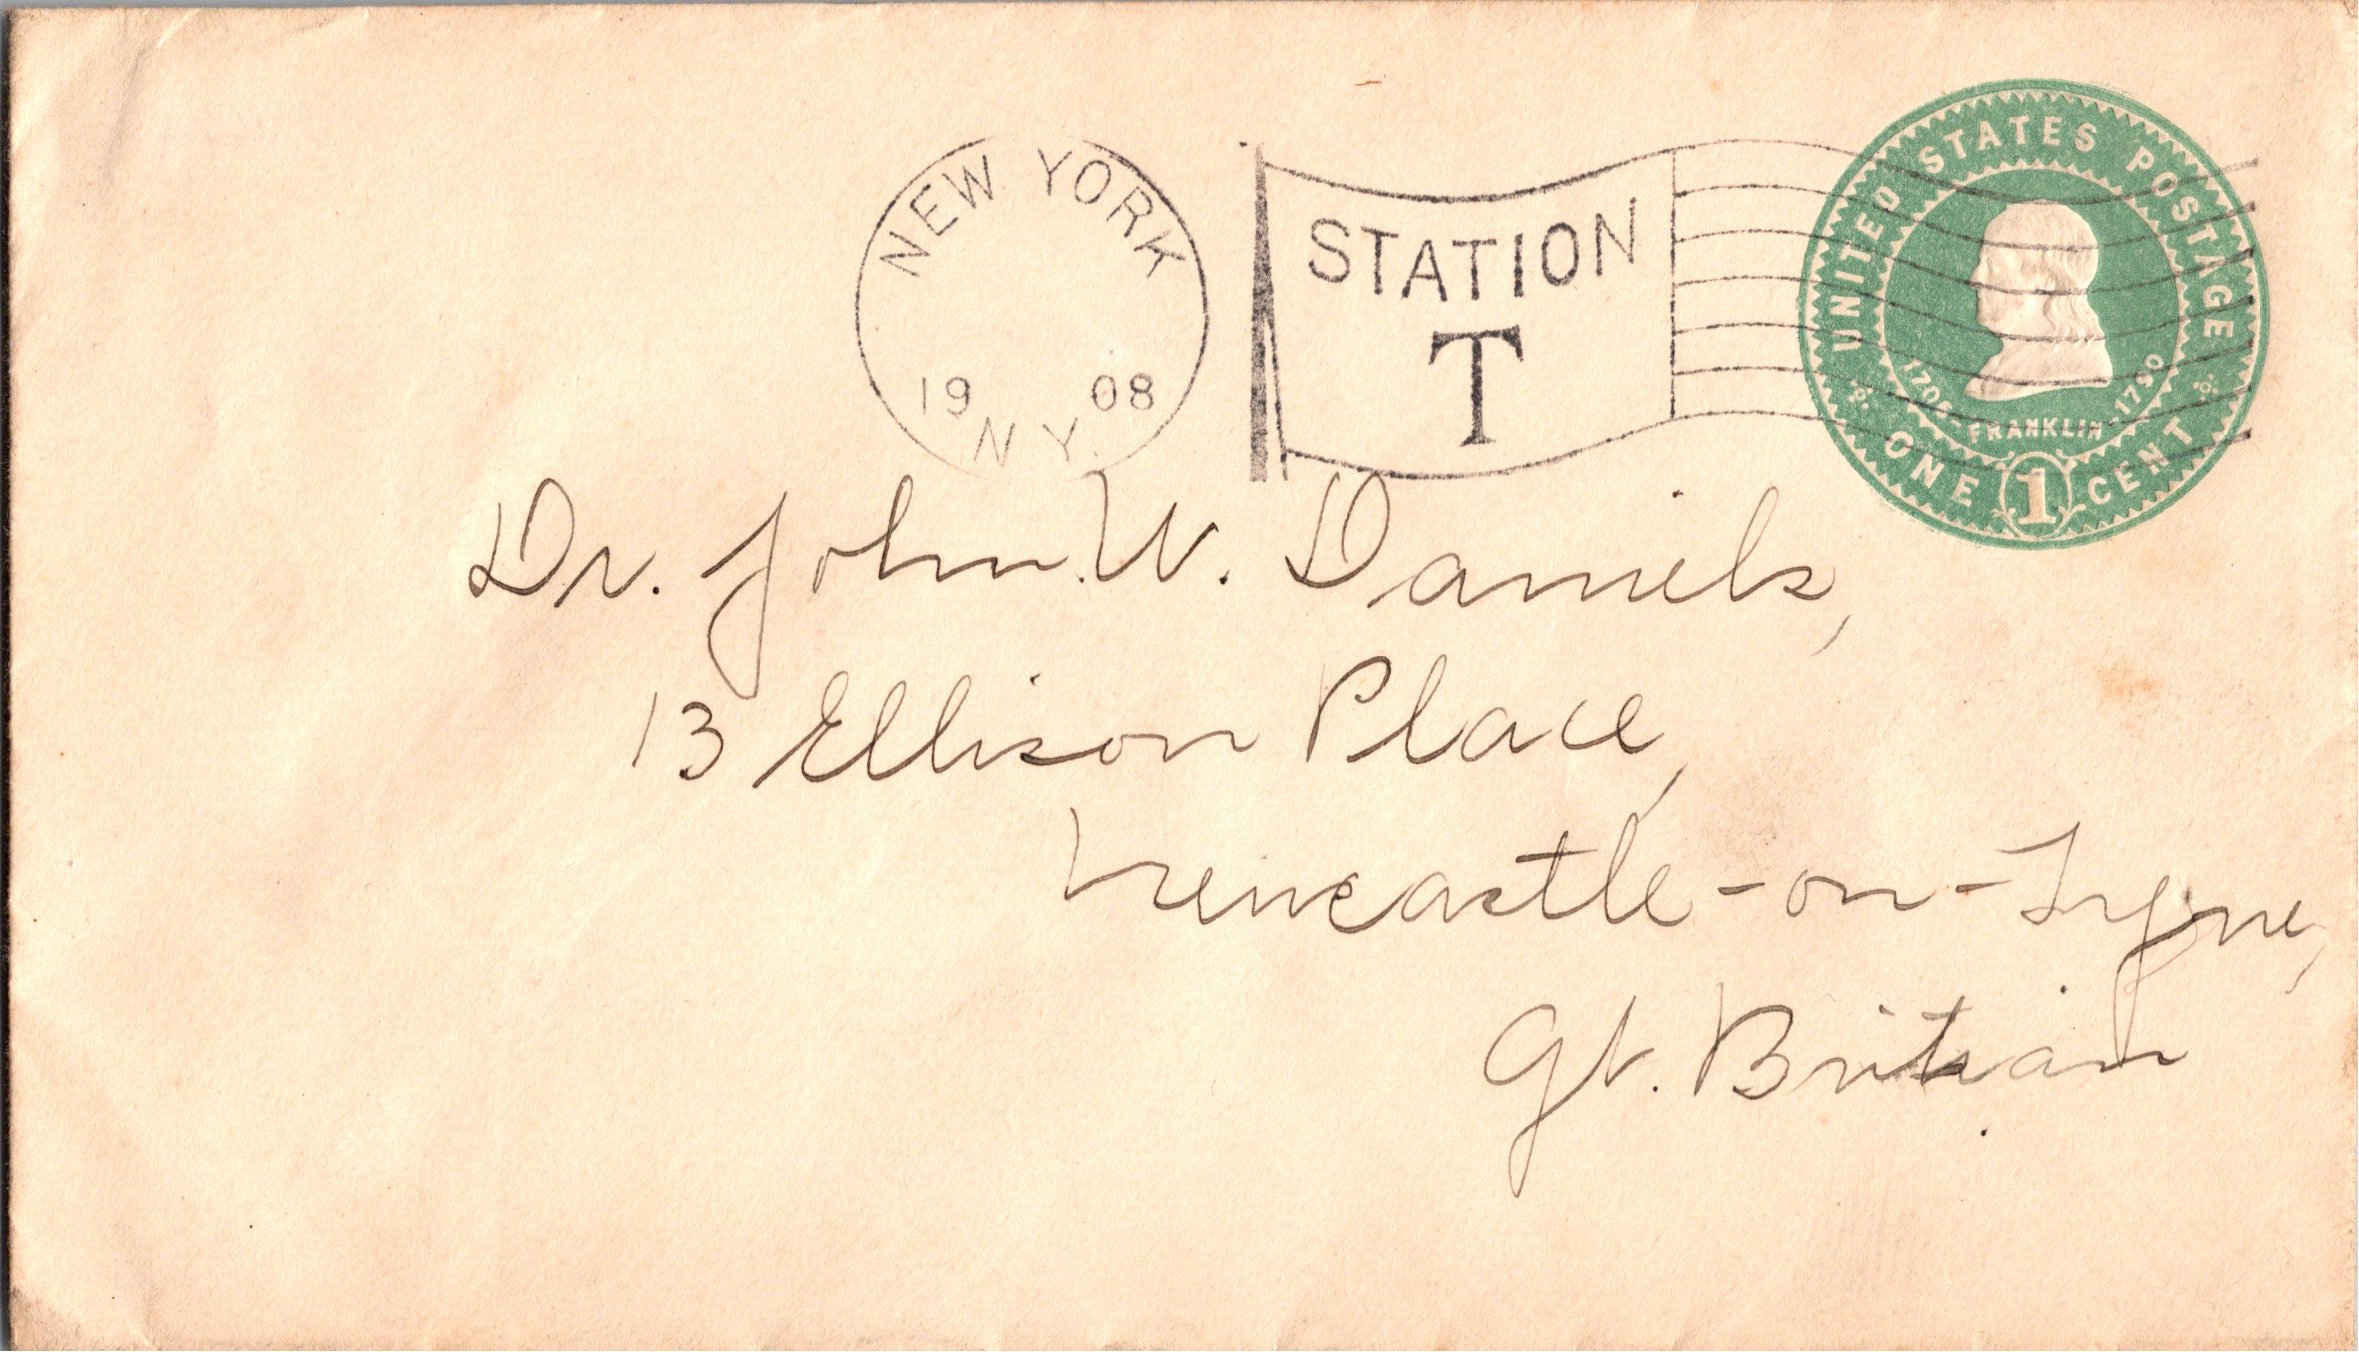 NEW YORK
19 08
N.Y.
STATION
T
UNITED STATES POSTAGE
1706-FRANKLIN-1790
ONE 1 CENT
Dr. John W. Daniels,
13 Ellison Place,
Newcastle-on-Tyne,
Gt. Britian